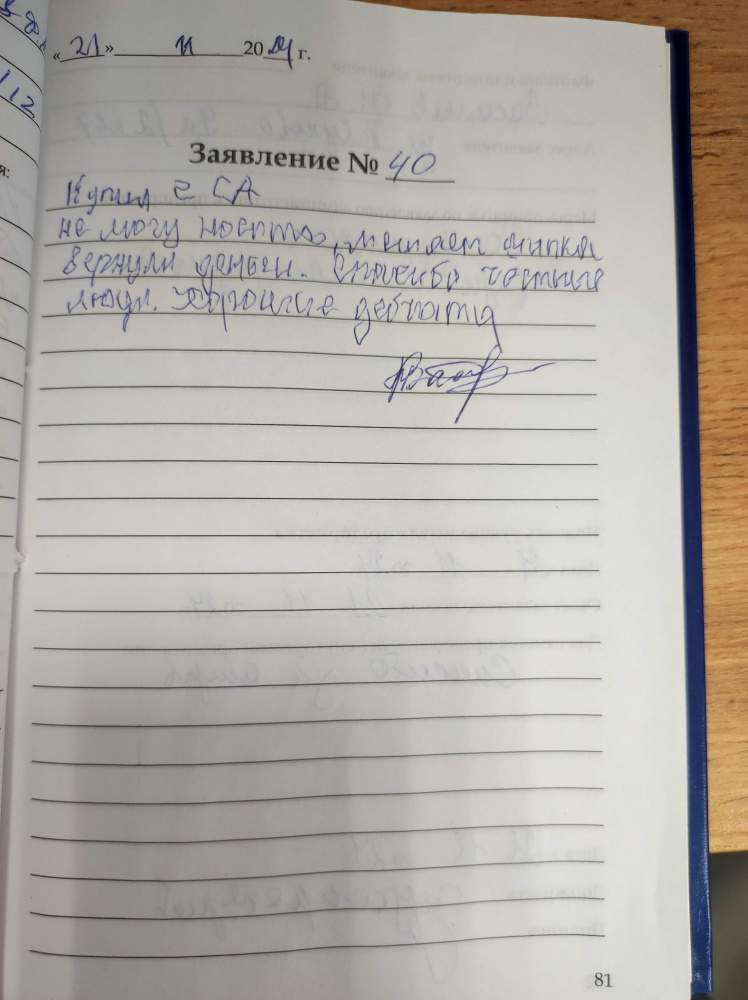 «21» 11 2024 г.
Заявление № 40
Купил 2 СА
не могу носить, мешает
вернули деньги. Спасибо честные
люди. Хорошие девчата
81